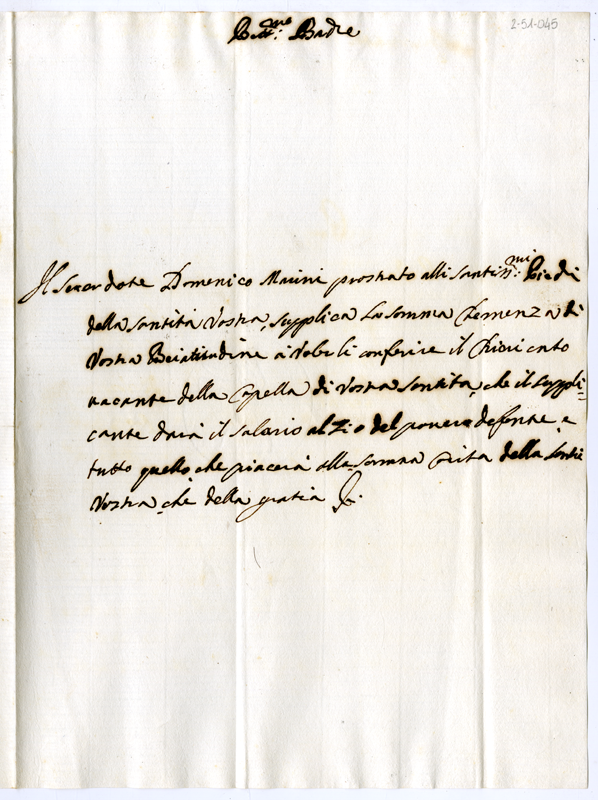 2-51-045
Batt.me: Padre
Il Sacerdote Domenico Marini prostrato alli Santiss.mi: Piedi
della Santità Vostra, supplica la somma Clemenza di
Vostra Beatitudine à conferire il Chiericato
vacante della Capella di Vostra Santità, che il suppli=
cante darà il salario al Zio del povero defonte, e
tutto quello, che piacerà alla somma Carità della Santità
Vostra, che della gratia &.